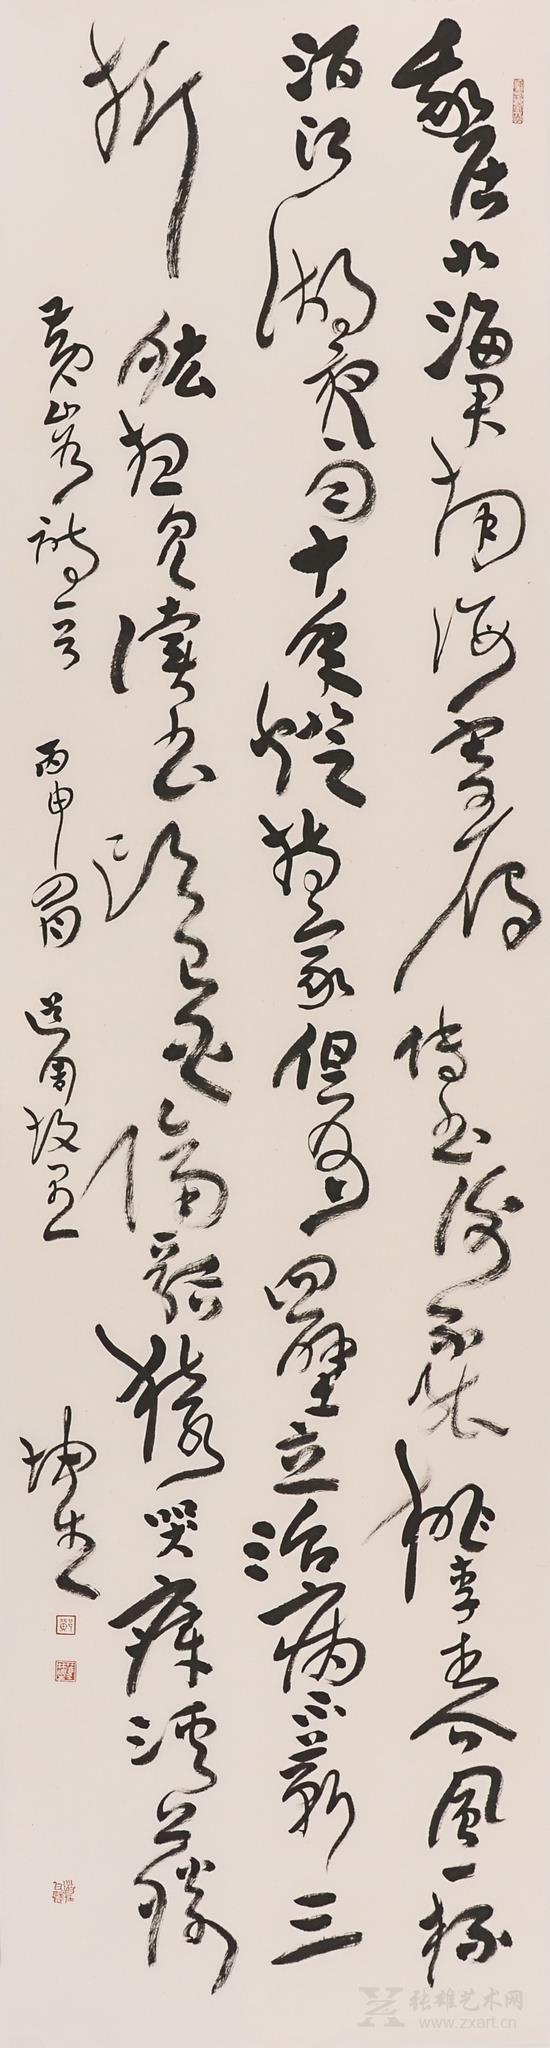 我居北海君南海寄雁传书谢不能桃李春风一杯
酒江湖夜雨十年灯持家但有四壁立治病不蕲三
折肱想见读书头已白隔溪猿哭瘴溪藤
黄山谷诗一首 丙申
坤生
张雄艺术网
www.zxart.cn